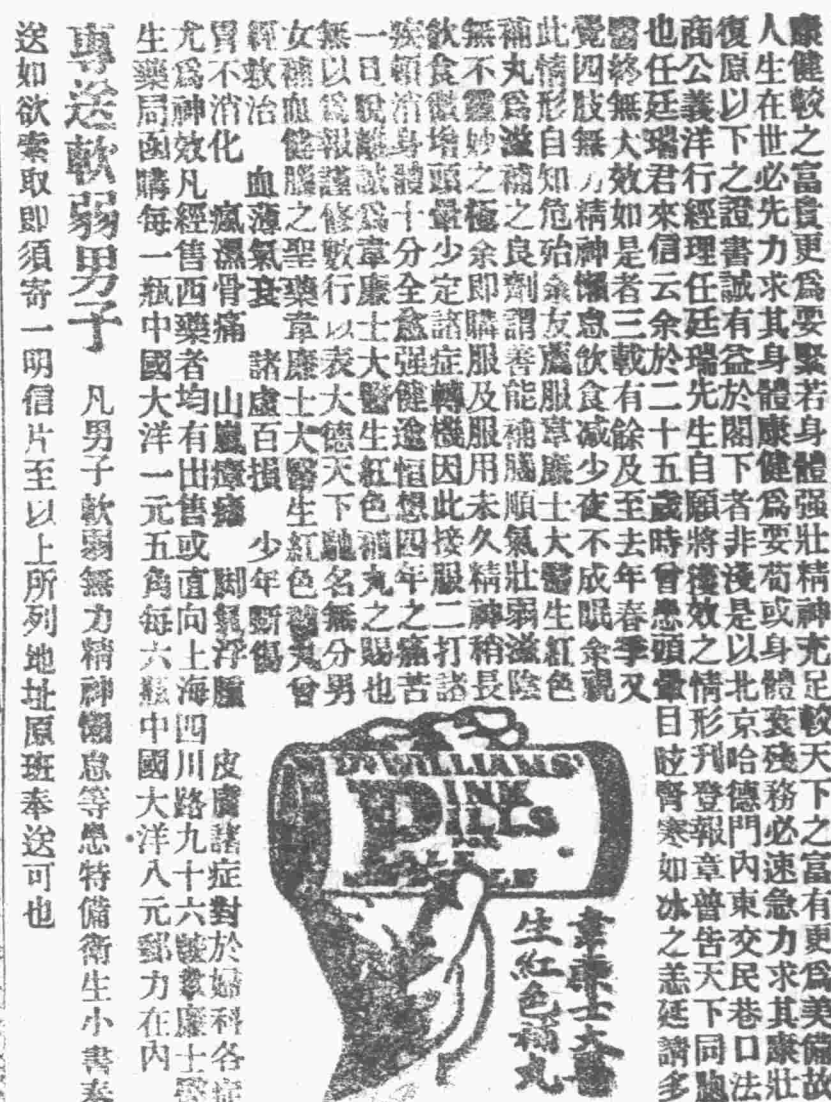 康健較之富貴更爲要緊若身體强壯精神充足較天下之富有更爲美備故
人生在世必先力求其身體康健爲要苟或身體衰殘務必速急力求其康壯
復原以下之證書誠有益於閣下者非淺是以北京哈德門內東交民巷口法
商公義洋行經理任廷瑞先生自願將獲效之情形刊登報章普告天下同胞
也任廷瑞君來信云余於二十五歲時曾患頭暈目眩腎寒如冰之恙延請多
醫終無大效如是者三載有餘及至去年春季又
覺四肢無力精神懶怠飲食减少夜不成眠余視
此情形自知危殆余友薦服韋廉士大醫生紅色
補丸爲滋補之良劑謂善能補腦順氣壯弱滋陰
無不靈妙之極余即購服及服用未久精神稍長
飲食微增頭暈少定諸症轉機因此接服二打諸
疾頓消身體十分全愈强健逾恒想四年之痛苦
一日脫離誠爲韋廉士大醫生紅色補丸之賜也
無以爲報謹修數行以表大德天下馳名無分男
女補血健腦之聖藥韋廉士大醫生紅色補丸曾
經救治 血薄氣衰 諸虛百損 少年斲傷
胃不消化 瘋濕骨痛 山嵐瘴瘧 脚氣浮腫 皮膚諸症對於婦科各症
尤爲神效凡經售西藥者均有出售或直向上海四川路九十六號韋廉士醫
生藥局函購每一瓶中國大洋一元五角每六瓶中國大洋八元郵力在內
專送軟弱男子 凡男子軟弱無力精神懶怠等患特備衛生小書奉
送如欲索取即須寄一明信片至以上所列地址原班奉送可也
DR WILLIAMS'
PINK
PILLS
FOR
PALE
PEOPLE
韋廉士大醫
生紅色補丸